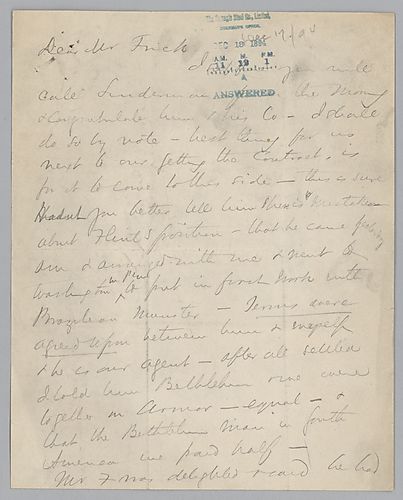 The Carnegie Steel Co., Limited,
Dec 17/94
Dear Mr Frick
DEC 19 1894
A.M. N. P.M.
11 12 1
I you will
ANSWERED
call Linderman the morning
& congratulate him & his Co — I shall
do so by note — best thing for us
next to our getting the contract, is
for it to come to this side — this is sure
you better tell him there is mistake
about Flint's position — that he came
and arranged with me & went to
Washington to put in first work with
Brazilian Minister — Terms were
agreed upon between him & myself
& he is our agent — after all settled
I told him Bethlehem & we were
together on Armor — equal — &
that the Bethlehem man in South
America we paid half —
Mr F was delighted & said he had